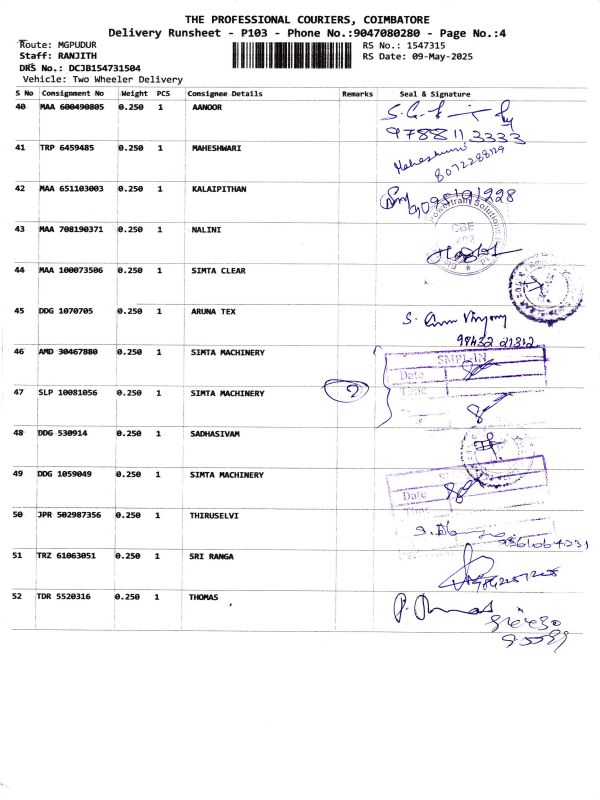 THE PROFESSIONAL COURIERS, COIMBATORE
Delivery Runsheet - P103 - Phone No.:9047080280 - Page No.:4
Route: MGPUDUR RS No.: 1547315
Staff: RANJITH RS Date: 09-May-2025
DRS No.: DCJB154731504
Vehicle: Two Wheeler Delivery
S No Consignment No Weight PCS Consignee Details Remarks Seal & Signature
40 MAA 600490805 0.250 1 AANOOR
97881 13333
41 TRP 6459485 0.250 1 MAHESHWARI Maheshwari
8072288129
42 MAA 651103003 0.250 1 KALAIPITHAN
Powertrain Solutions
CBE
43 MAA 708190371 0.250 1 NALINI
44 MAA 100073506 0.250 1 SIMTA CLEAR
45 DDG 1070705 0.250 1 ARUNA TEX
46 AMD 30467880 0.250 1 SIMTA MACHINERY
SMPL-IN
Date
Time
47 SLP 10081056 0.250 1 SIMTA MACHINERY 2
48 DDG 530914 0.250 1 SADHASIVAM
49 DDG 1059049 0.250 1 SIMTA MACHINERY
Date
50 JPR 502987356 0.250 1 THIRUSELVI
51 TRZ 61063051 0.250 1 SRI RANGA
52 TDR 5520316 0.250 1 THOMAS